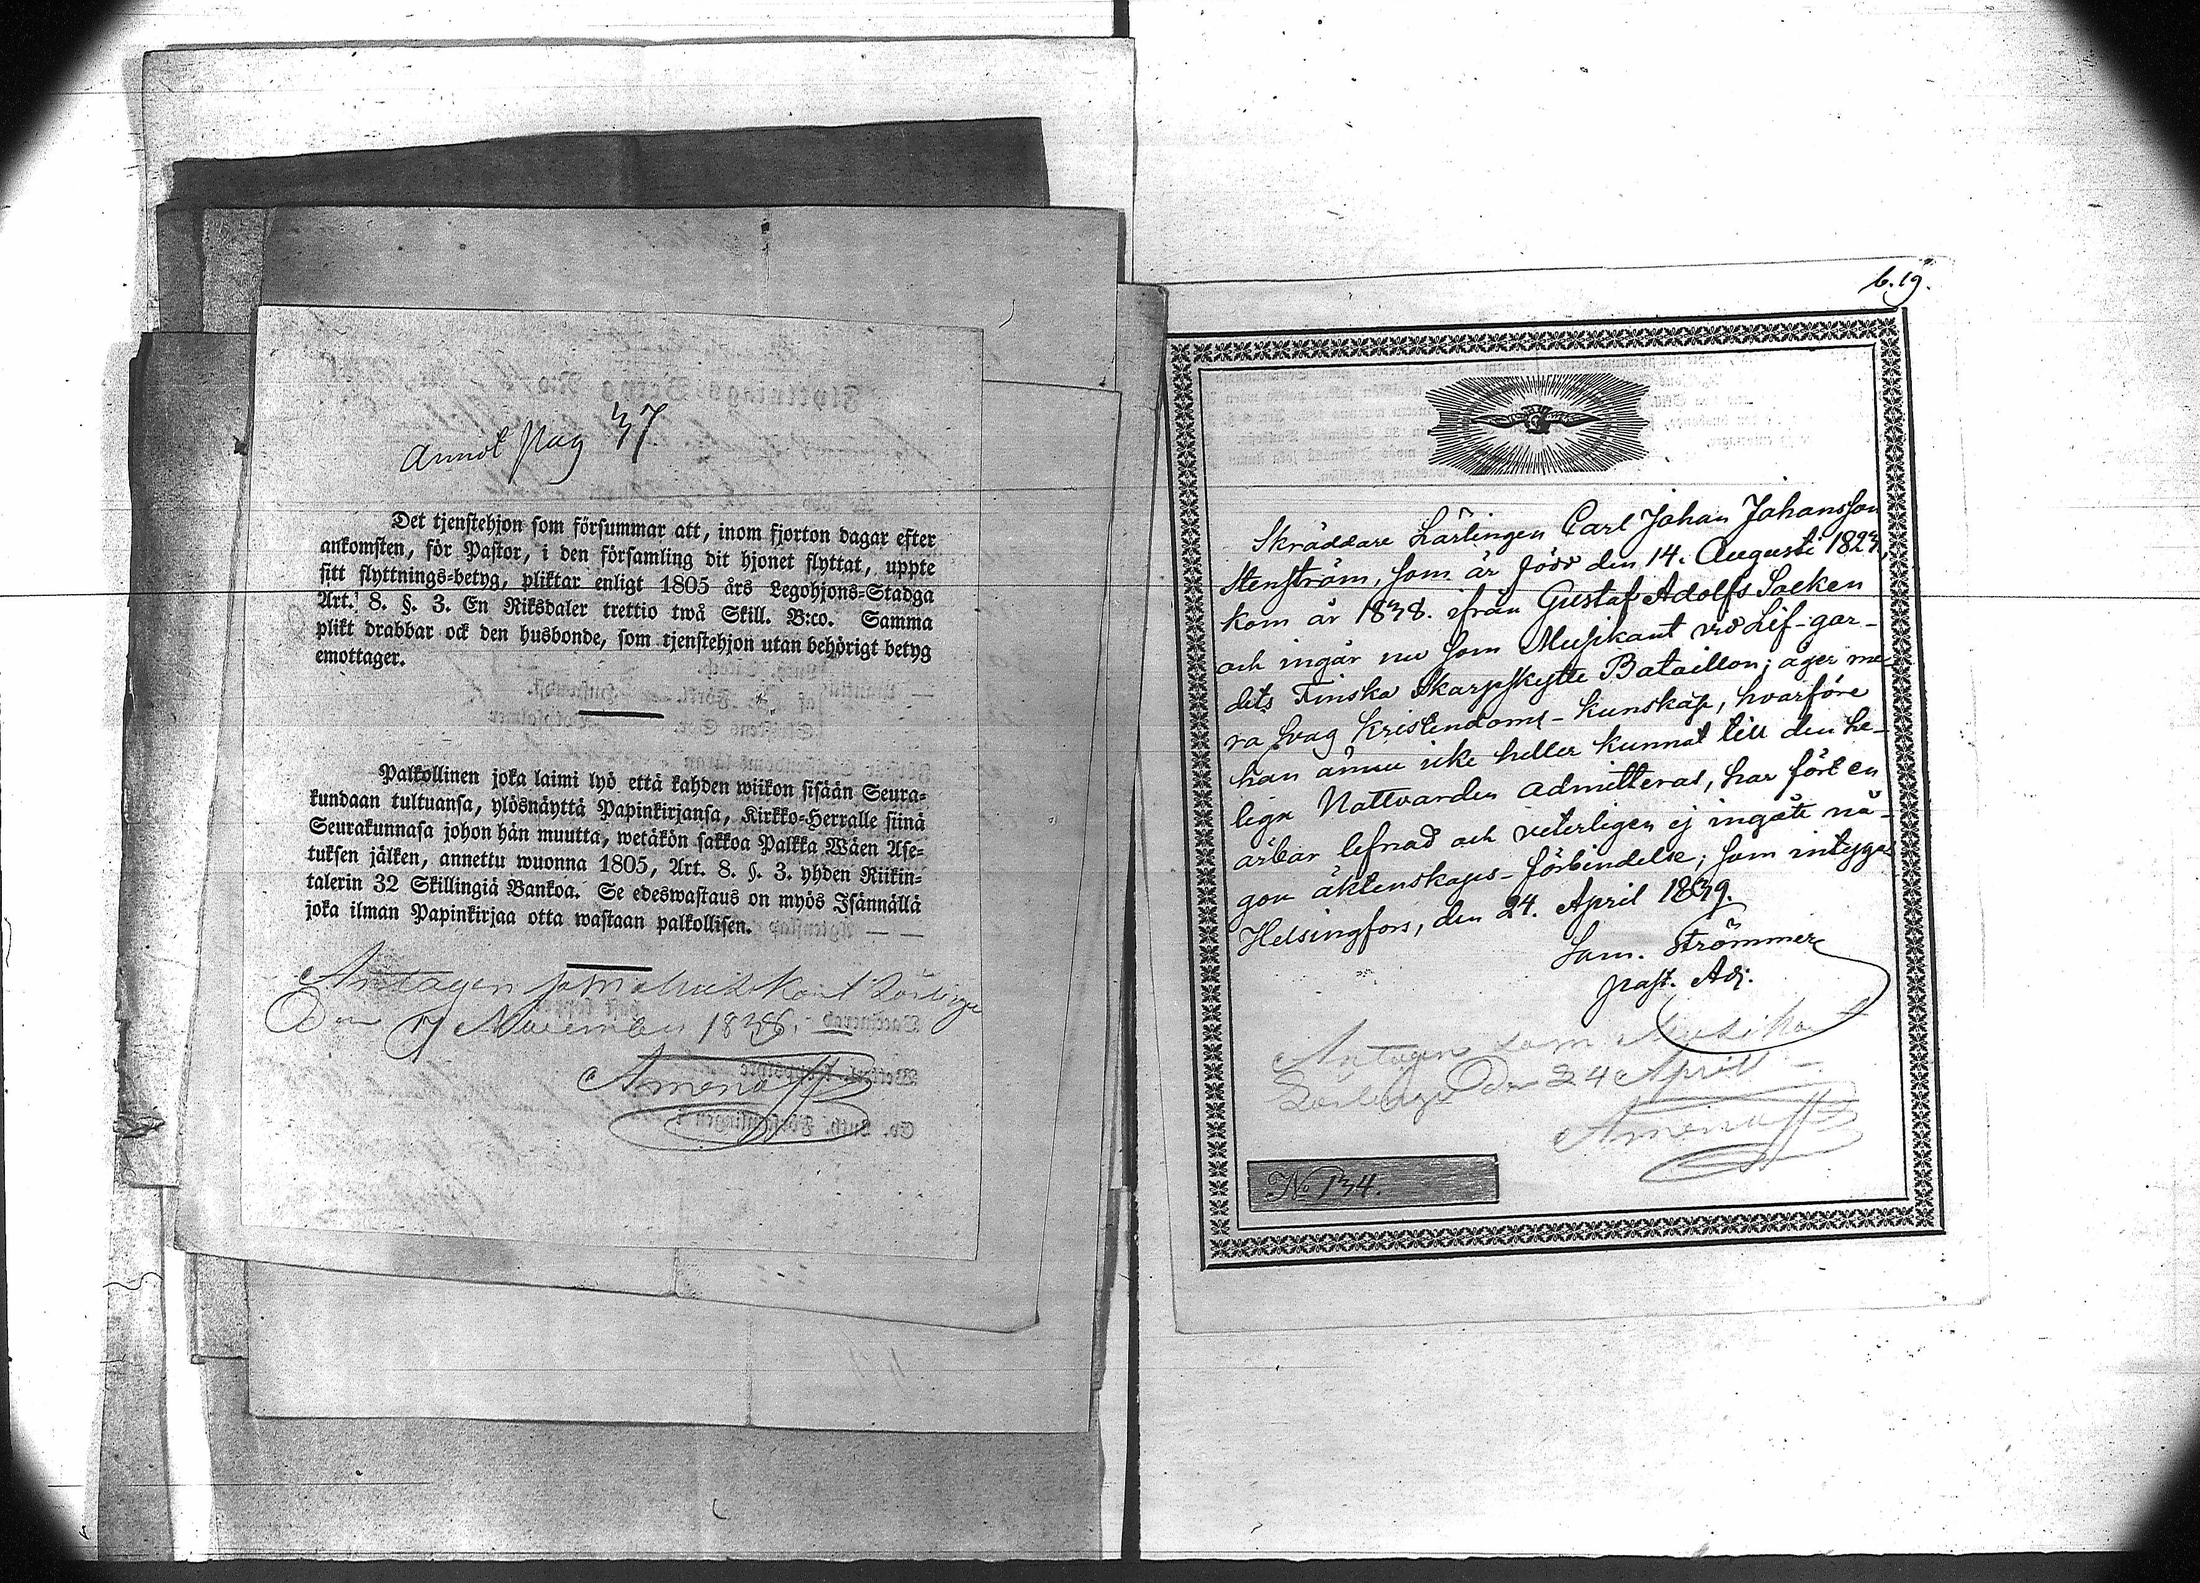 annot pag 37
Det tjenstehjon som försummar att, inom fjorton dagar efter
ankomsten, för Pastor, i den församling dit hjonet flyttat, uppte
sitt flyttnings-betyg, pliktar enligt 1805 års Legohjons-Stadga
Art. 8. §. 3. En Riksdaler trettio twå Skill. B:co. Samma
plikt drabbar ock den husbonde, som tjenstehjon utan behörigt betyg
emottager.
Palkollinen joka laimi lyö että kahden wiikon sisään Seura-
kundaan tultuansa, ylösnäyttä Papinkirjansa, Kirkko-Herralle siinä
Seurakunnasa johon hän muutta, wetäkön sakkoa Palkka Wäen Ase-
tuksen jälken, annettu wuonna 1805, Art. 8. §. 3. yhden Riikin-
talerin 32 Skillingiä Bankoa. Se edeswastaus on myös Isännällä
joka ilman Papinkirjaa otta wastaan palkollisen.
Antagen som Musikant Lärlinge
Den 7 November 1838.
Amenoff
b. 19.
Skräddare Lärlingen Carl Johan Johansson
Stenström, som är född den 14. Augusti 1823,
kom år 1838. ifrån Gustaf Adolfs Socken
och ingår nu som Musikant vid Lif-gar-
dets Finska Skarpskytte Bataillon; äger me-
ra svag Kristendoms-kunskap, hvarföre
han ännu icke heller kunnat till den He-
liga Nattvarden admitteras, har fört en
ärbar lefnad och veterligen ej ingått nå-
gon äktenskaps-förbindelse; som intygas
Helsingfors, den 24. April 1839.
Sam. Strömmer
past. Adj.
Antagen som Musikant
Lärlinge Den 24 Aprill
Amenoff
No 134.